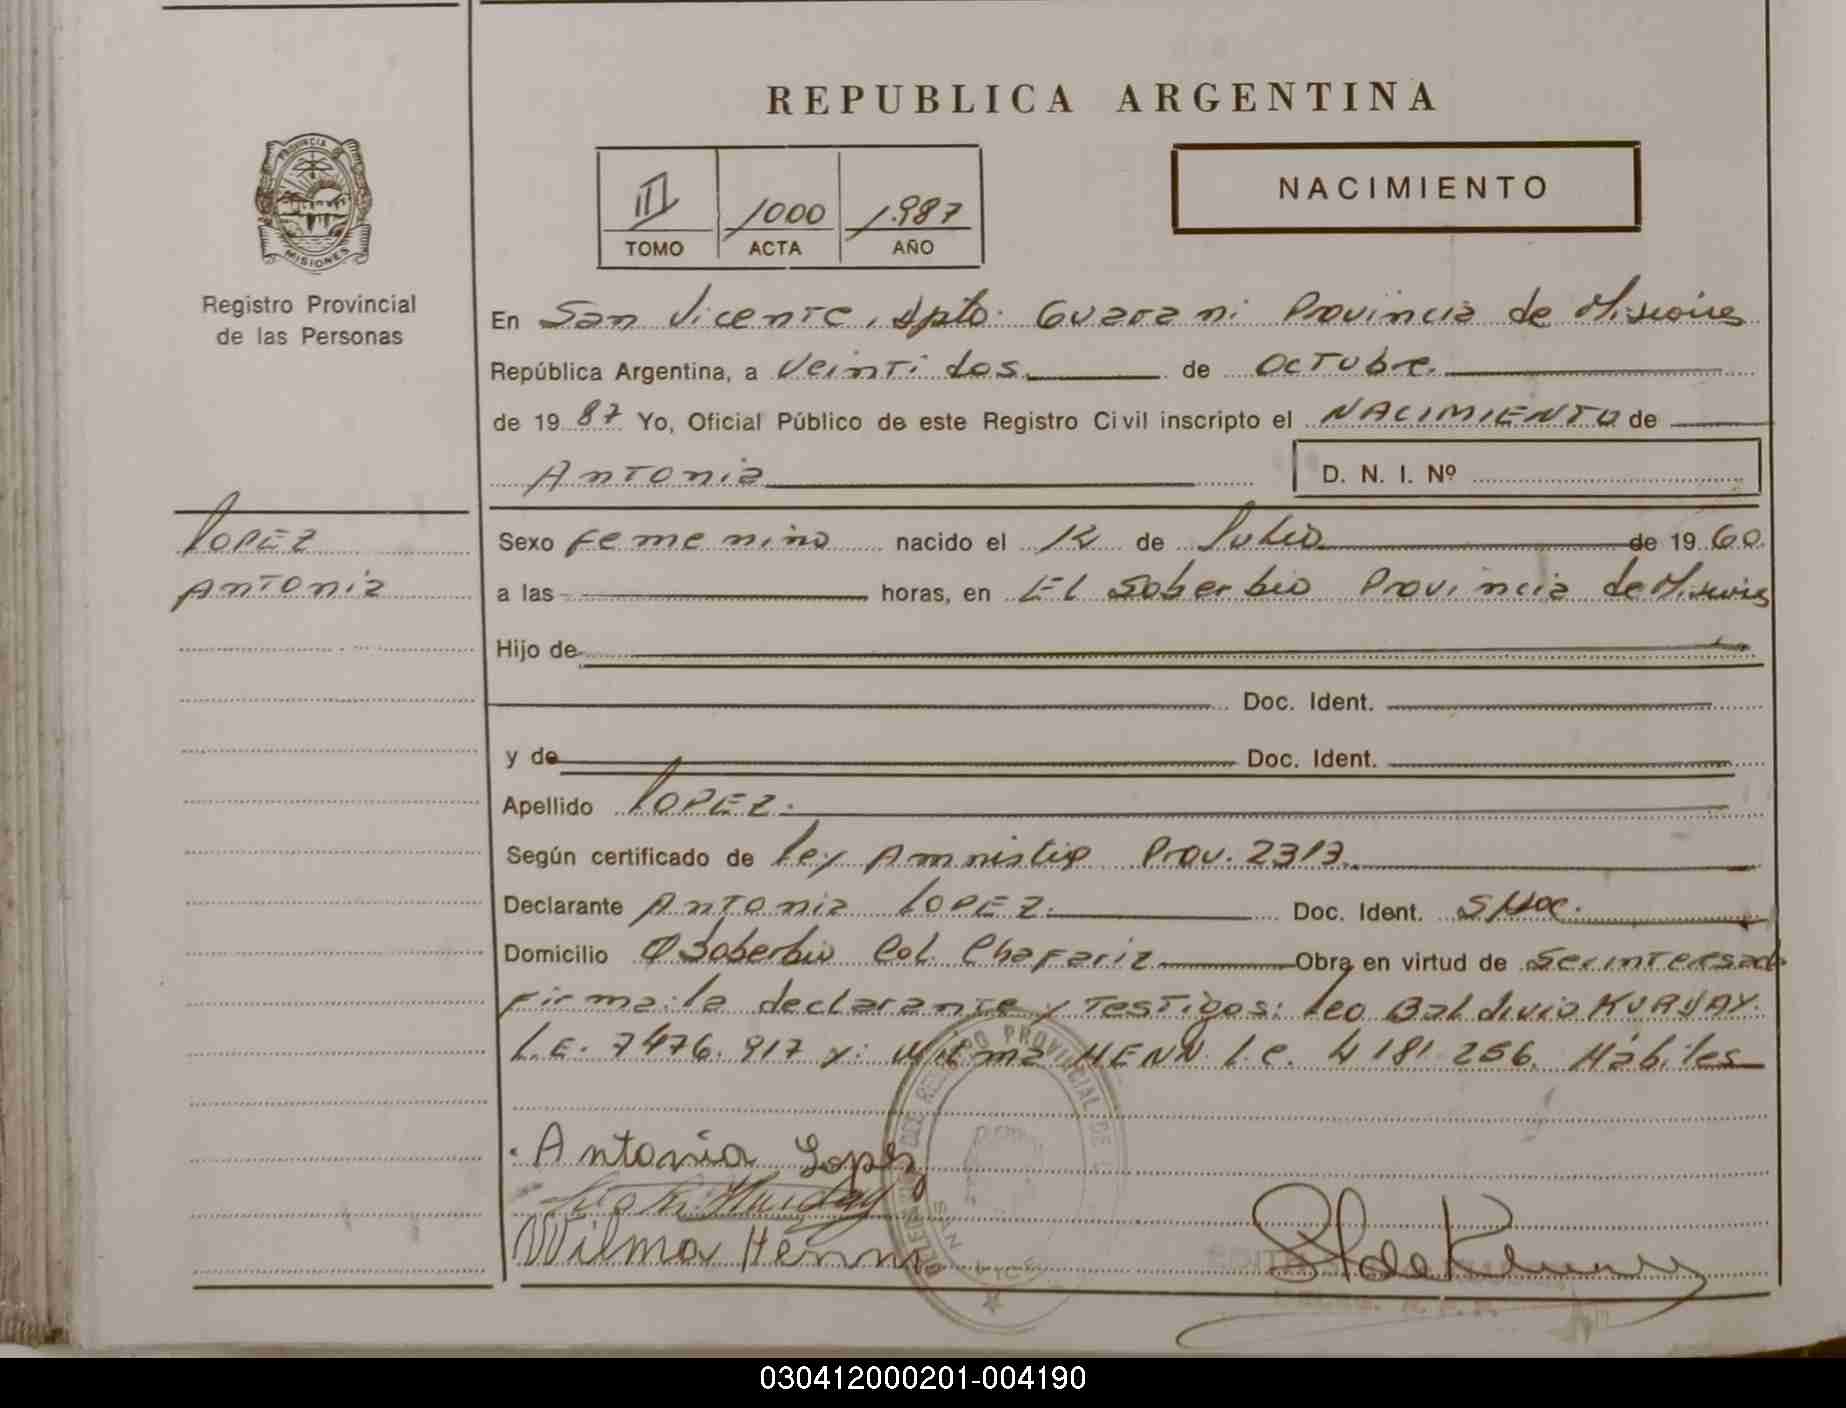 REPUBLICA ARGENTINA
PROVINCIA DE
MISIONES
Registro Provincial
de las Personas
III 1000 1.987
TOMO ACTA AÑO
NACIMIENTO
En San Vicente, dpto. Guarani Provincia de Misiones
República Argentina, a Veinti dos de Octubre.
de 19 87 Yo, Oficial Público de este Registro Civil inscripto el NACIMIENTO de
Antonia
D. N. I. Nº
LOPEZ
Antonia
Sexo femenino nacido el 12 de Julio de 19 60
a las horas, en El Soberbio Provincia de Misiones
Hijo de
Doc. Ident.
y de Doc. Ident.
Apellido LOPEZ.
Según certificado de Ley Amnistia Prov. 2313.
Declarante Antonia LOPEZ. Doc. Ident. S/doc.
Domicilio Soberbio Col. Chafariz Obra en virtud de Ser interesada
firma: la declarante y Testigos: Leo Baldivio
L.E. 7476.917 y: Wilma HENN L.C. 4181.256. Hábiles
Antonia Lopez
Wilma Henn
REGISTRO PROVINCIAL DE
030412000201-004190